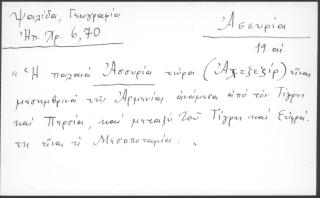 Ψαλίδα, Γεωγραφία
Ἠπ. Χρ. 6, 70
Ἀσσυρία
19. αἰ
« Ἡ παλαιά Ἀσσυρία τώρα (Ἀτζεζίρ) εἶναι
μεσημβρινά τῆς Ἀρμενίας ἀνάμεσα ἀπό τόν Τίγρη
καί Περσία, καί μεταξύ τοῦ Τίγρη καί Εὐφρά-
τη εἶναι ἡ Μεσοποταμία. »